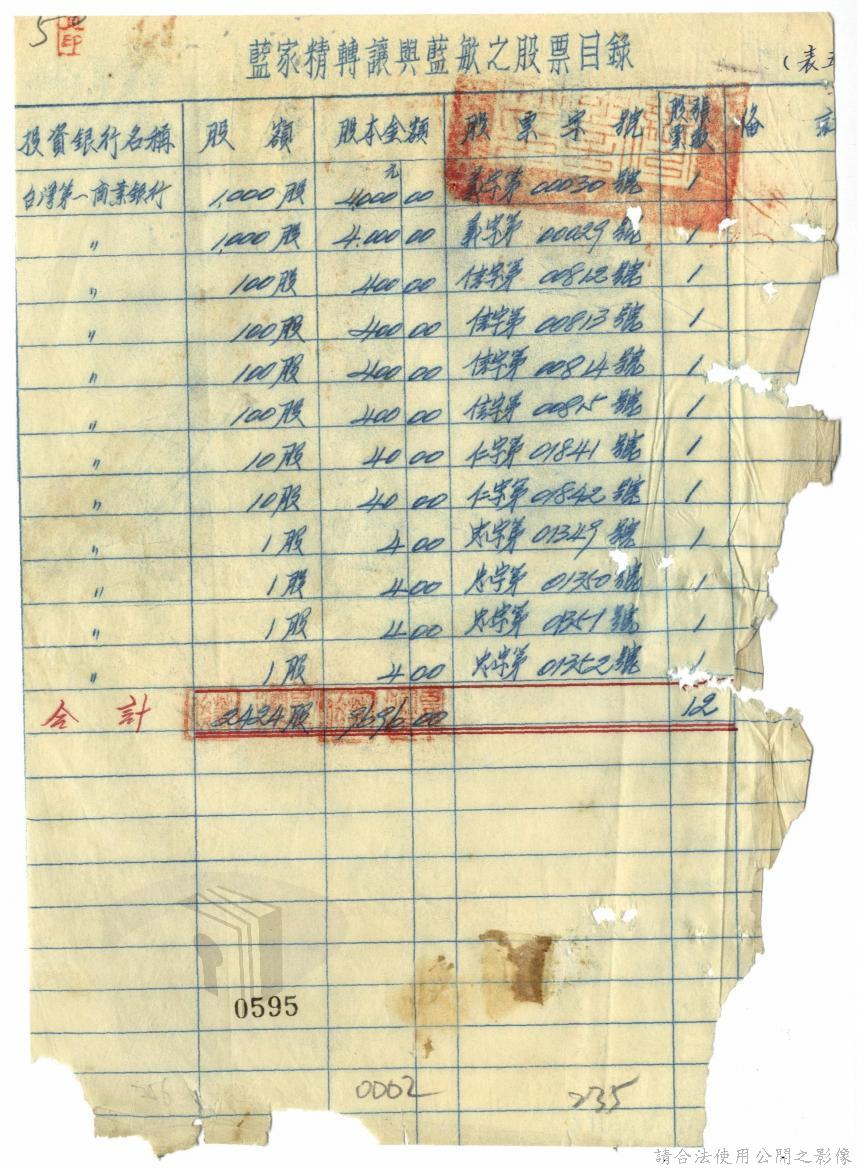 5
藍家精轉讓與藍敏之股票目錄
(表五
投資銀行名稱 股額 股本金額 股票字號 股票張數 備註
台灣第一商業銀行 1,000股 4,000元00 義字第00030號 1
〃 1,000股 4,000 00 義字第00029號 1
〃 100股 400 00 信字第00812號 1
〃 100股 400 00 信字第00813號 1
〃 100股 400 00 信字第00814號 1
〃 100股 400 00 信字第00815號 1
〃 10股 40 00 仁字第01841號 1
〃 10股 40 00 仁字第01842號 1
〃 1股 4 00 忠字第01349號 1
〃 1股 4 00 忠字第01350號 1
〃 1股 4 00 忠字第01351號 1
〃 1股 4 00 忠字第01352號 1
合計 2424股 9696 00 12
0595
0002
235
請合法使用公開之影像